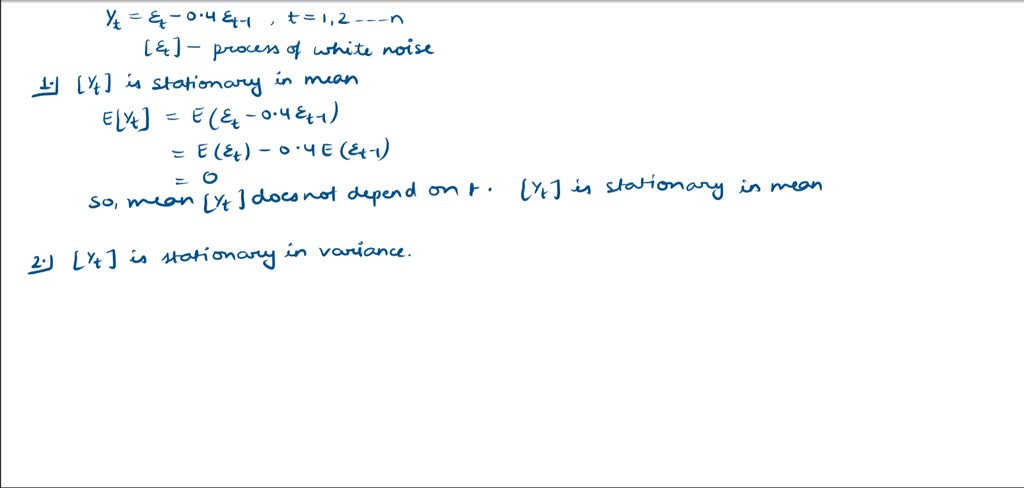 Yt = εt − 0.4 εt-1 , t = 1, 2 ---- n
[εt] − process of white noise
1.) [Yt] is stationary in mean
E[Yt] = E(εt − 0.4 εt-1)
= E(εt) − 0.4 E(εt-1)
= 0
so, mean [Yt] does not depend on t. [Yt] is stationary in mean
2.) [Yt] is stationary in variance.